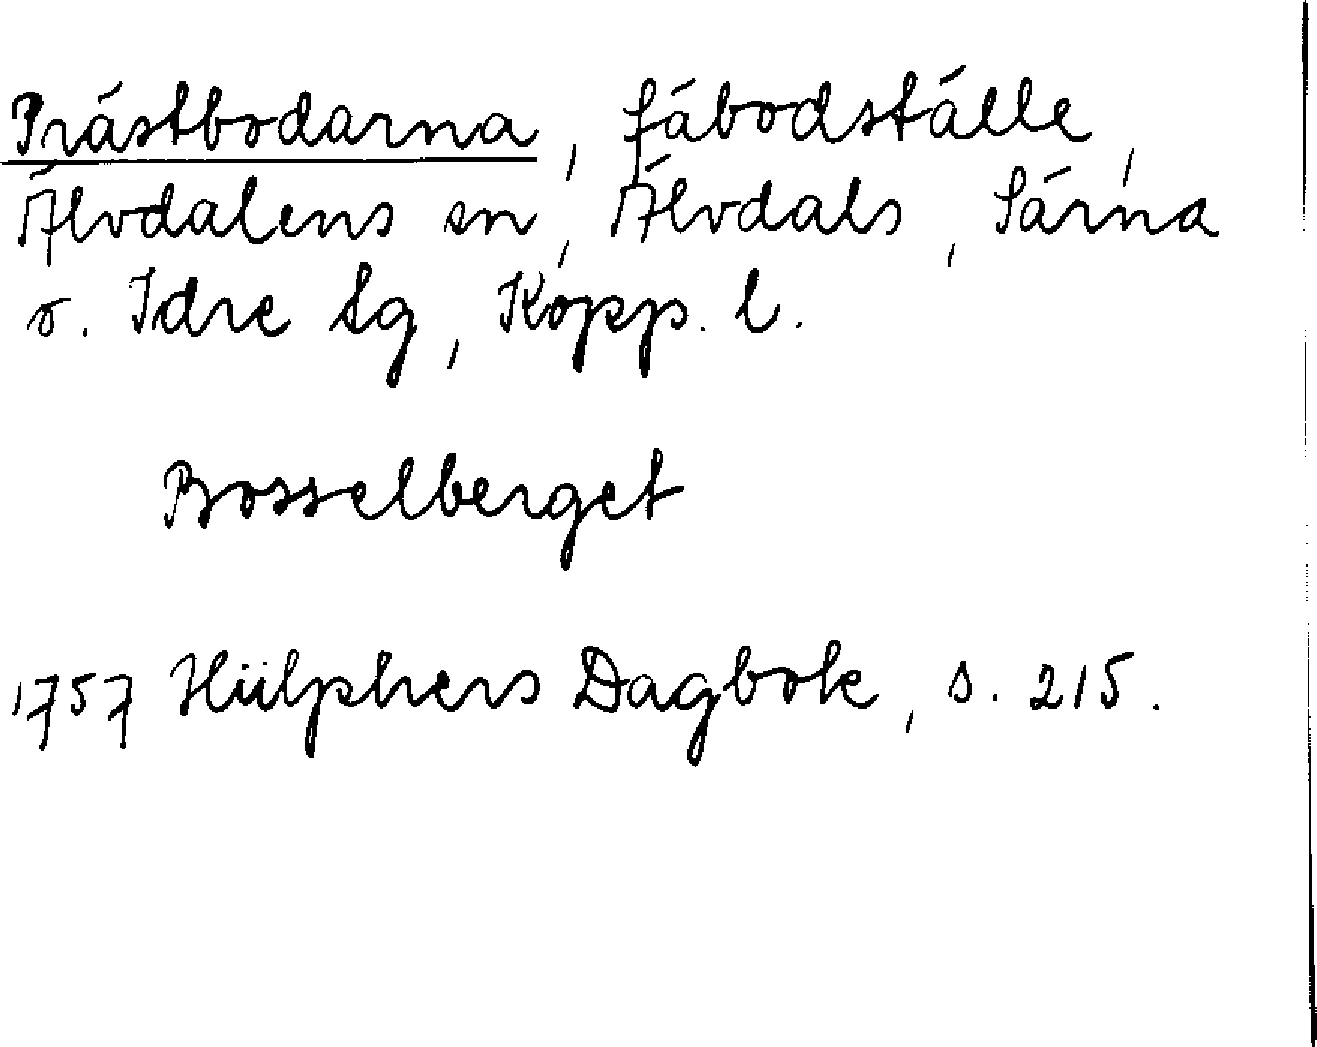 Prästbodarna, fäbodställe,
Älvdalens sn, Älvdals, Särna
o. Idre tg, Kopp. l.
Bosselberget
1757 Hülphers Dagbok, s. 215.